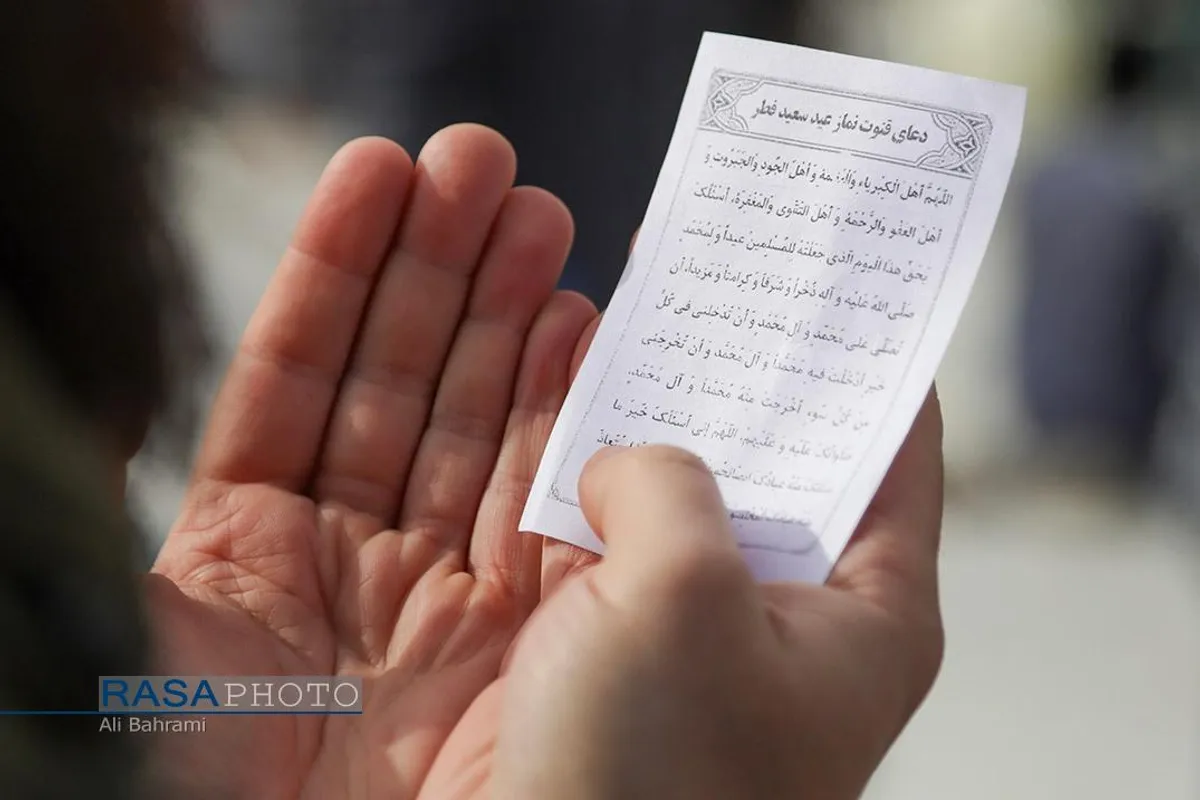 دعای قنوت نماز عید سعید فطر
اَللّهُمَّ اَهْلَ الْکِبْرِیاءِ وَالْعَظَمَةِ وَ اَهْلَ الْجُودِ وَالْجَبَرُوتِ وَ
اَهْلَ الْعَفْوِ وَالرَّحْمَةِ وَ اَهْلَ التَّقْوی وَالْمَغْفِرَةِ، اَسْئَلُکَ
بِحَقِّ هذَا الْیَوْمِ الَّذی جَعَلْتَهُ لِلْمُسْلِمینَ عیداً وَ لِمُحَمَّدٍ
صَلَّی اللهُ عَلَیْهِ وَ آلِهِ ذُخْراً وَ شَرَفاً وَ کَرامَتاً وَ مَزیداً، اَنْ
تُصَلِّیَ عَلی مُحَمَّدٍ وَ آلِ مُحَمَّدٍ وَ اَنْ تُدْخِلَنی فی کُلِّ
خَیْرٍ اَدْخَلْتَ فیهِ مُحَمَّداً وَ آلَ مُحَمَّدٍ وَ اَنْ تُخْرِجَنی
مِنْ کُلِّ سُوءٍ اَخْرَجْتَ مِنْهُ مُحَمَّداً وَ آلَ مُحَمَّدٍ،
صَلَواتُکَ عَلَیْهِ وَ عَلَیْهِمْ، اَللّهُمَّ اِنّی اَسْئَلُکَ خَیْرَ ما
سَئَلَکَ مِنْهُ عِبادُکَ الصّالِحُونَ
RASAPHOTO
Ali Bahrami